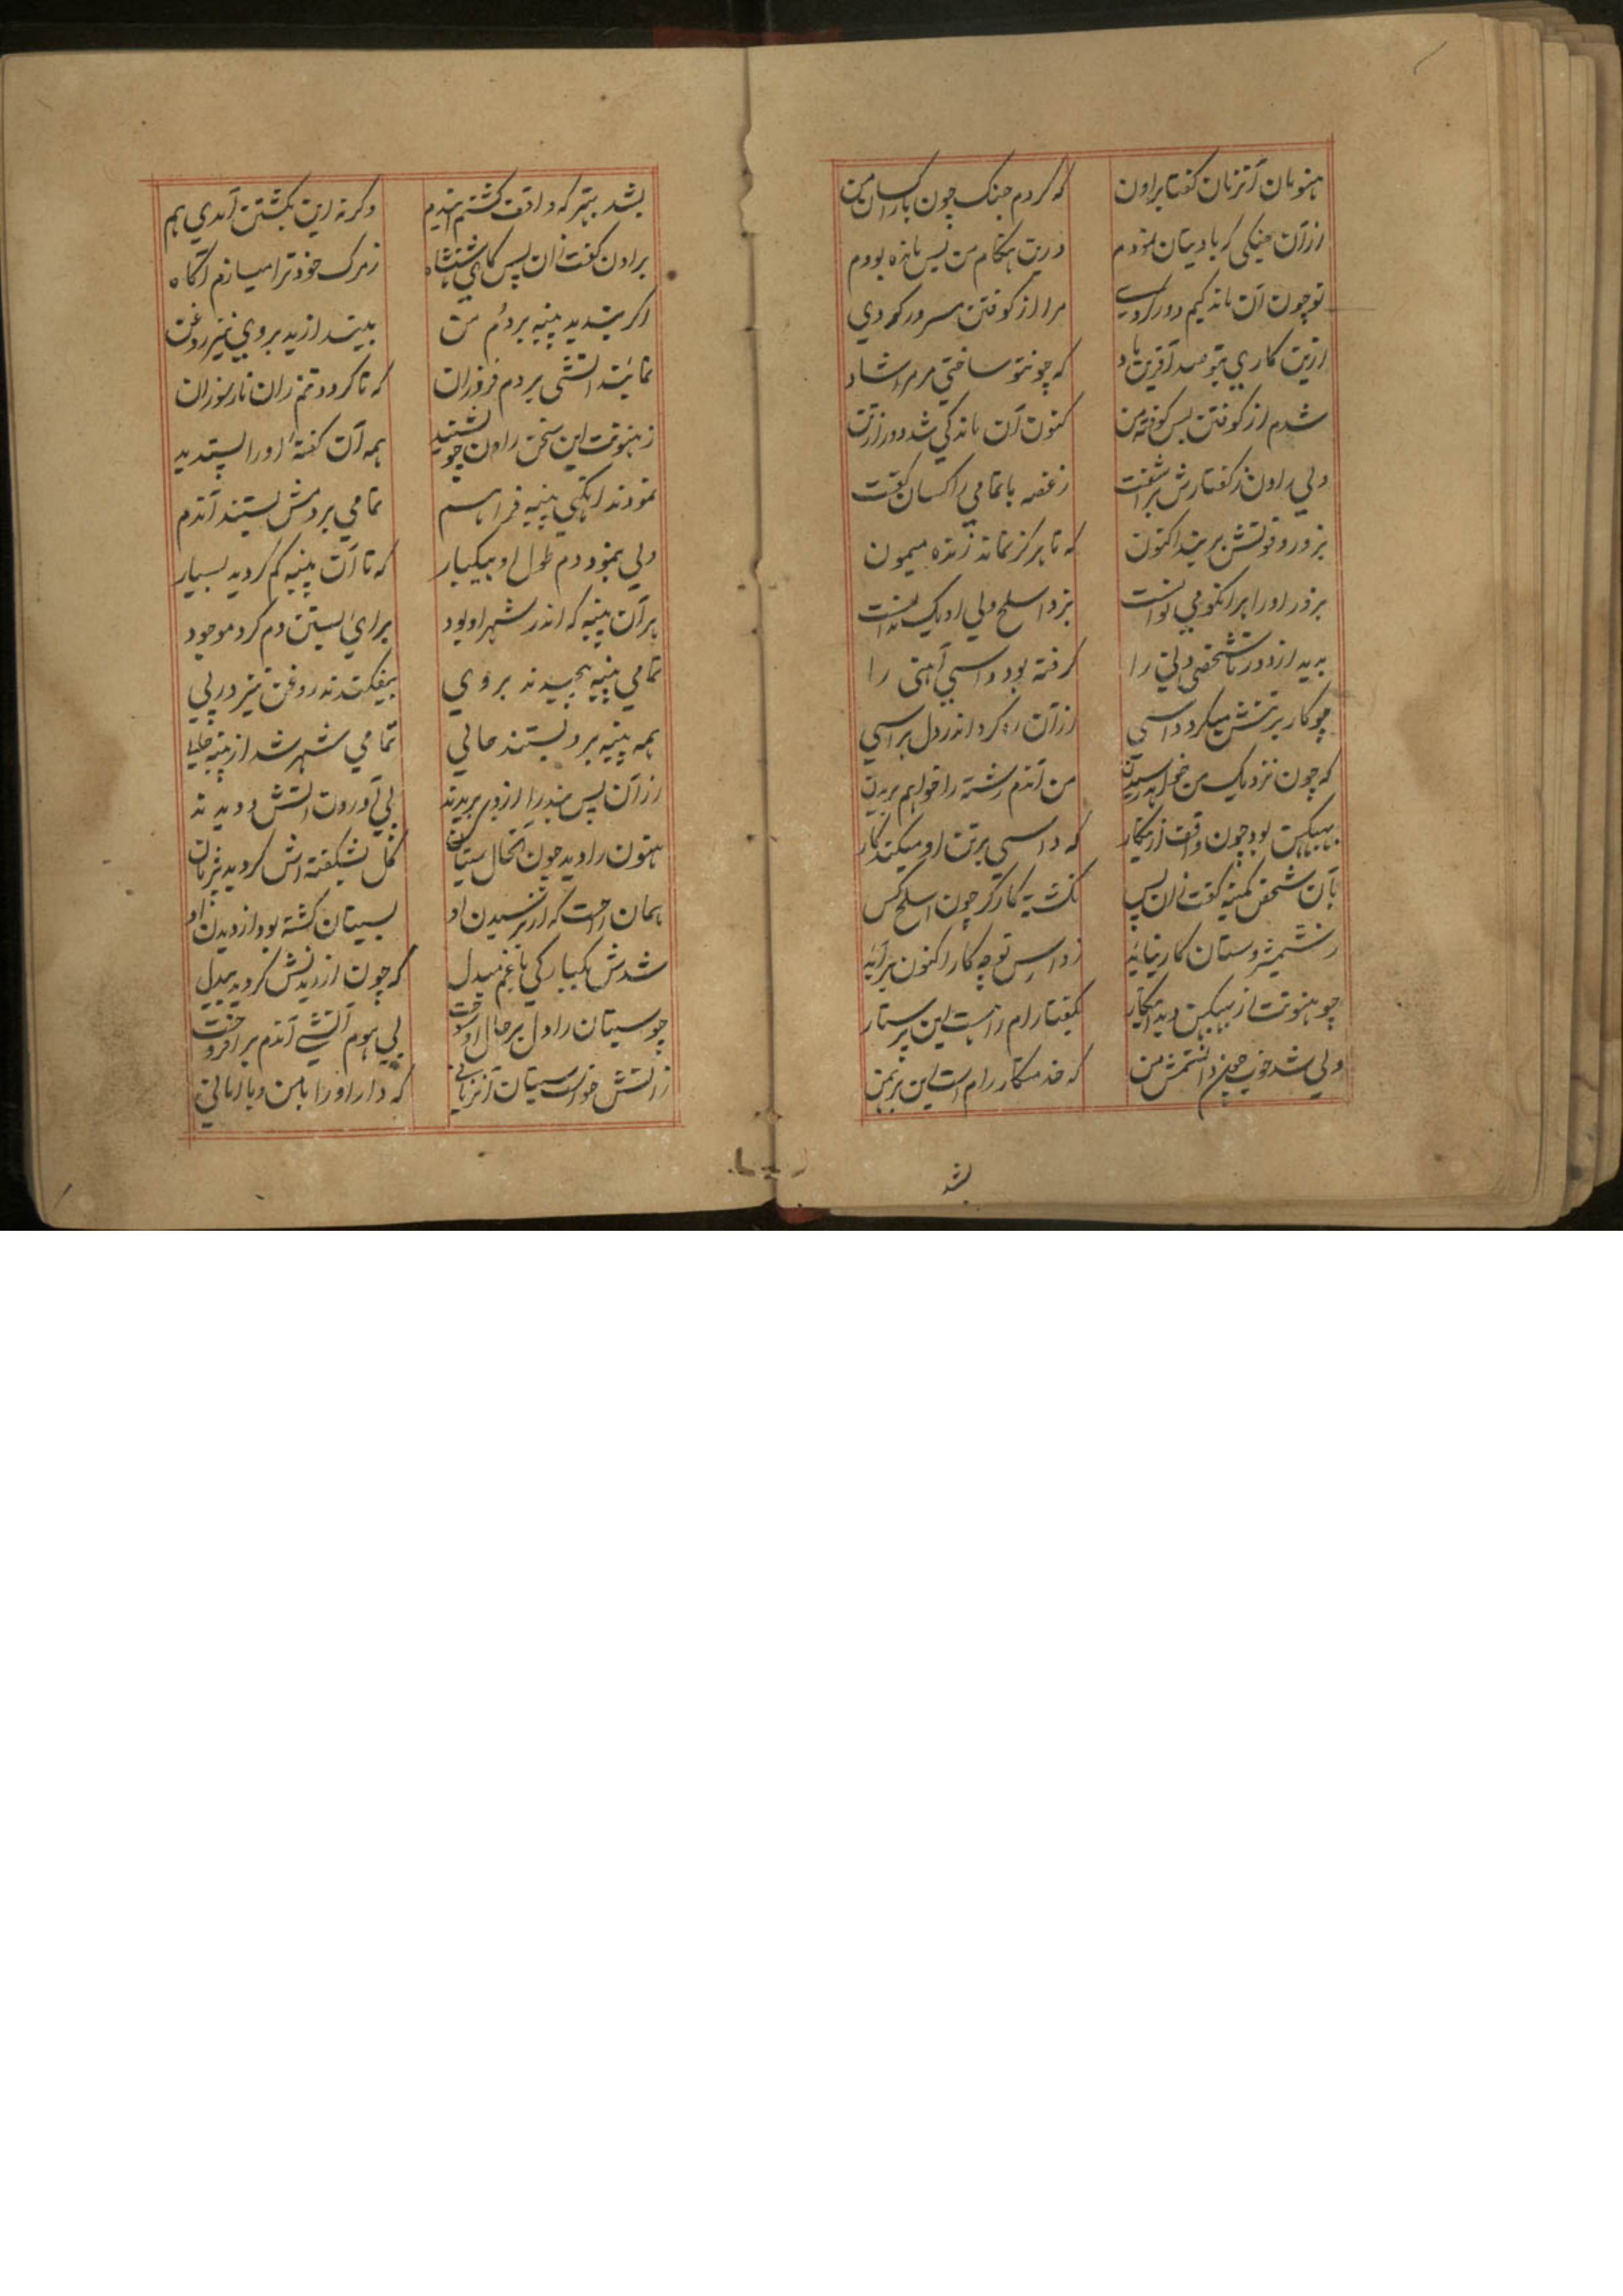 هنومان آنزمان گفتا براون که کردم جنک چون با راکسان من
ازآن جنکی که بادیتان نمودم درین هنکام من بس مانده بودم
تو چون آن ماندکیم دور کردی مرا از کوفتن مسرور کردی
ازین کاری بتو صد آفرین باد که چونتو ساختی مر مرا شاد
شدم از کوفتن بس کوفته من کنون آن ماندکی شد دور ازتن
ولی راون ز کفتارش براشفت زغصه باتمامی راکسان کفت
بزور وقوتش برید اکنون که تا هرکز نماند زنده میمون
بزور اورا هرانکو می توانست بزد اسلح ولی او یک
بدید از دور تا شخصی دنی را کرفته بود داسی آهنی را
چو کار برتنش میکرد داسی ازآن ره کرد اندر دل هراسی
که چون نزدیک من خواهد رسیدن من آندم رشته را خواهم بریدن
ببیکن بود چون واقف ازینکار که داسی برتن او میکند کار
بآن شخص کمینه کفت زان پس نکشته کارکر چون اسلح کس
زشمشیر وسنان کار نیایه زداس تو چه کار اکنون برآیه
چو هنونت از ببیکن دید اینکار بکفتا رام را هست این پرستار
ولی شد خوب چون دانستمش من که خدمتکار رام است این برهمن
بشد
بشد بهتر که واقف کشتم ایندم وکرنه این بکشتن آمدی هم
براون کفت زان پس کای شهنشاه زمرک خود ترا میسازم آکاه
اکر بندید پنبه بر دُم من بیندازید بروی نیز روغن
نمائید آتشی بر دم فروزان که تا کردد تنم زان نار سوزان
زهنونت این سخن راون چو بشنید همه آن کفتهٔ اورا پسندید
نمودند آنکهی پنبه فراهم تمامی بر دمش بستند آندم
ولی بنمود دم طول او بیکبار که تا آن پنبه کم کردید بسیار
هرآن پنبه که اندر شهر او بود برای بستن دم کرد موجود
تمامی پنبه پیچیدند بروی بیفکندند روغن نیز در پی
همه پنبه برو بستند حالی تمامی شهر شد از پنبه خالی
ازآن پس بندرا از دم بریدند پی آوردن آتش دویدند
هنون را دید چون آنحال سیتان کل نشکفته اش کردید پژمان
همان راحت که از رسیدن او بسیتان کشته بود از دیدن او
شدش یکبارکی باغم مبدل که چون از دیدنش کردید بیدل
چو سیتان را دل برحال او سوخت پی هوم آتشی آندم برافروخت
زآتش خواست سیتان آنزمانی که دار اورا بامن وباامانی